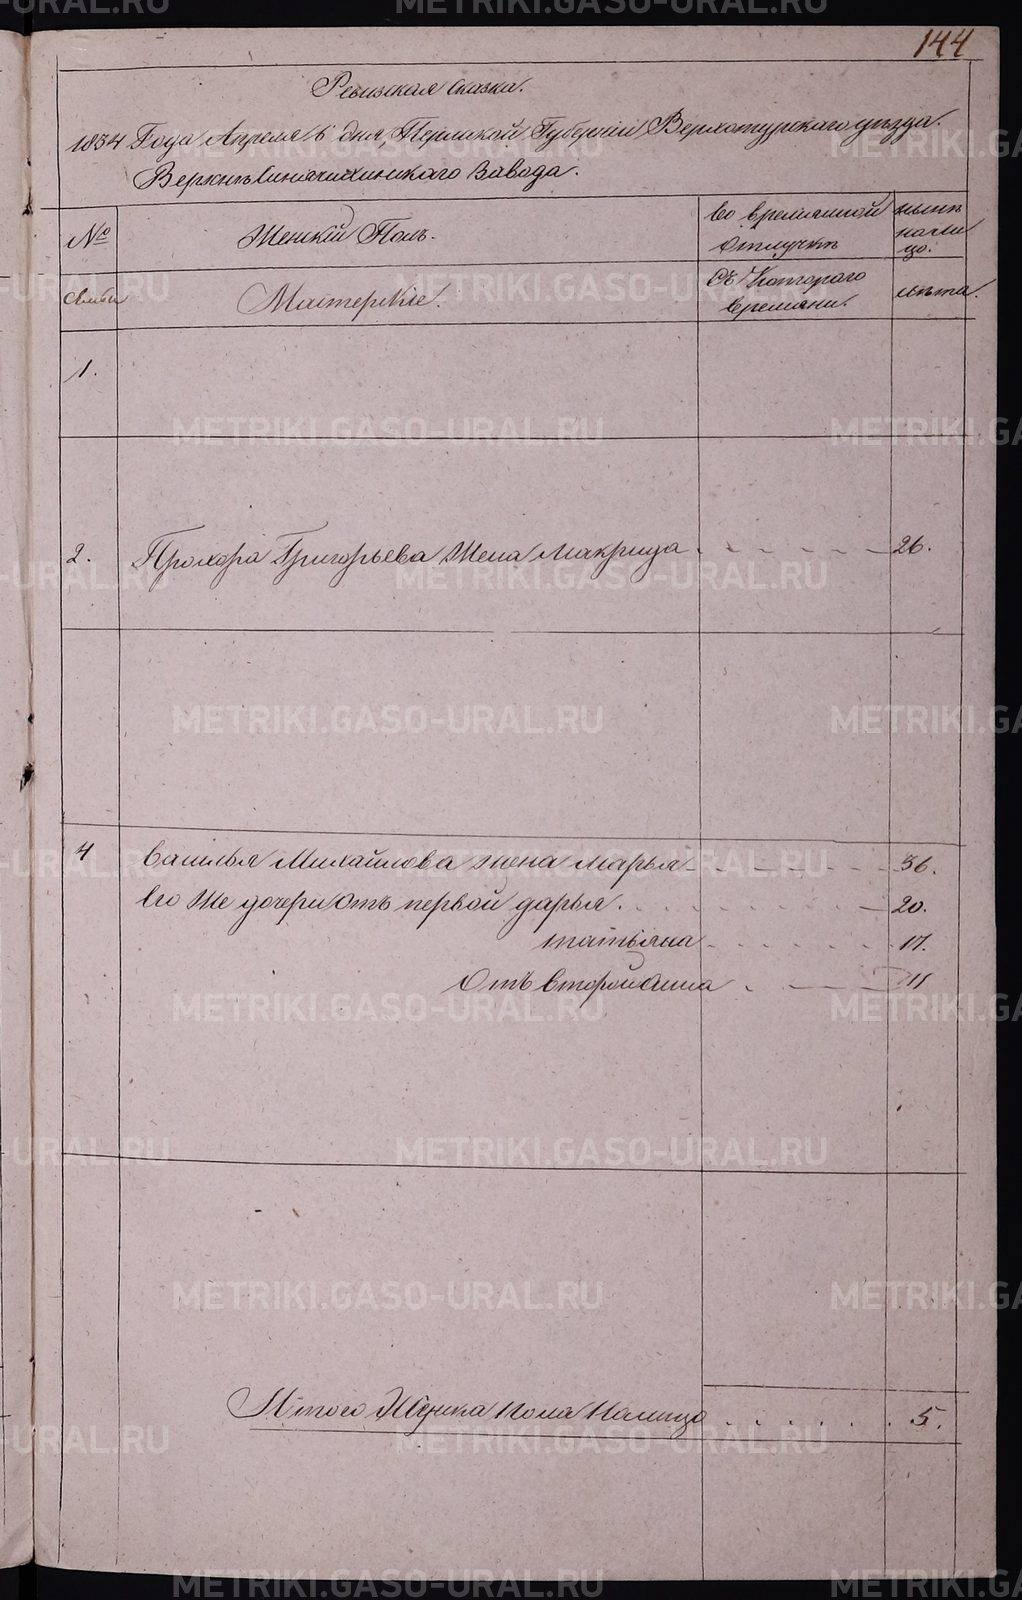 144
Ревизская Сказка.
1834 Года Апреля 6 дня, Пермской Губернiи Верхотурскаго уѣзда.
Верхнѣ Синячихинскаго Завода.
№
Женскiй Полъ.
Во временной
Отлучкѣ
нынѣ
на ли
цо.
семьи
Мастерскiе.
Съ Котораго
времени.
лѣта.
1.
2. Прохора Григорьева Жена Макрида 26.
4 Василья Михайлова жена Марья 36.
Его Же дочери отъ первой дарья. 20.
татьяна 17.
Отъ второй анна 11
Итого Женска пола Налицо 5.
METRIKI.GASO-URAL.RU